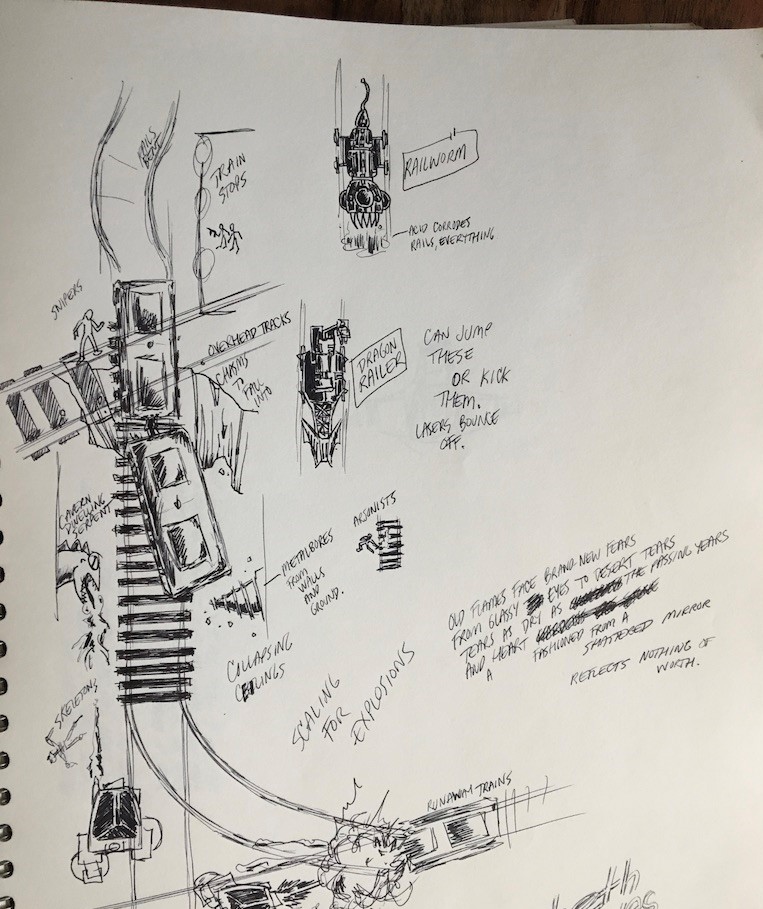 RAILS
BENT
TRAIN
STOPS
RAILWORM
ACID CORRODES
RAILS, EVERYTHING
SNIPERS
OVERHEAD TRACKS
CHASMS
TO
FALL
INTO
DRAGON
RAILER
CAN JUMP
THESE
OR KICK
THEM.
LASERS BOUNCE
OFF.
CAVERN
DWELLING
SERPENT
METALBORES
FROM
WALLS
AND
GROUND.
ARSONISTS
COLLAPSING
CEILINGS
OLD FLAMES FACE BRAND-NEW FEARS
FROM GLASSY EYES TO DESERT TEARS
TEARS AS DRY AS THE PASSING YEARS
AND HEART FASHIONED FROM A
A SHATTERED MIRROR
REFLECTS NOTHING OF
WORTH.
SKELETONS
SCALING
FOR
EXPLOSIONS
RUNAWAY TRAINS